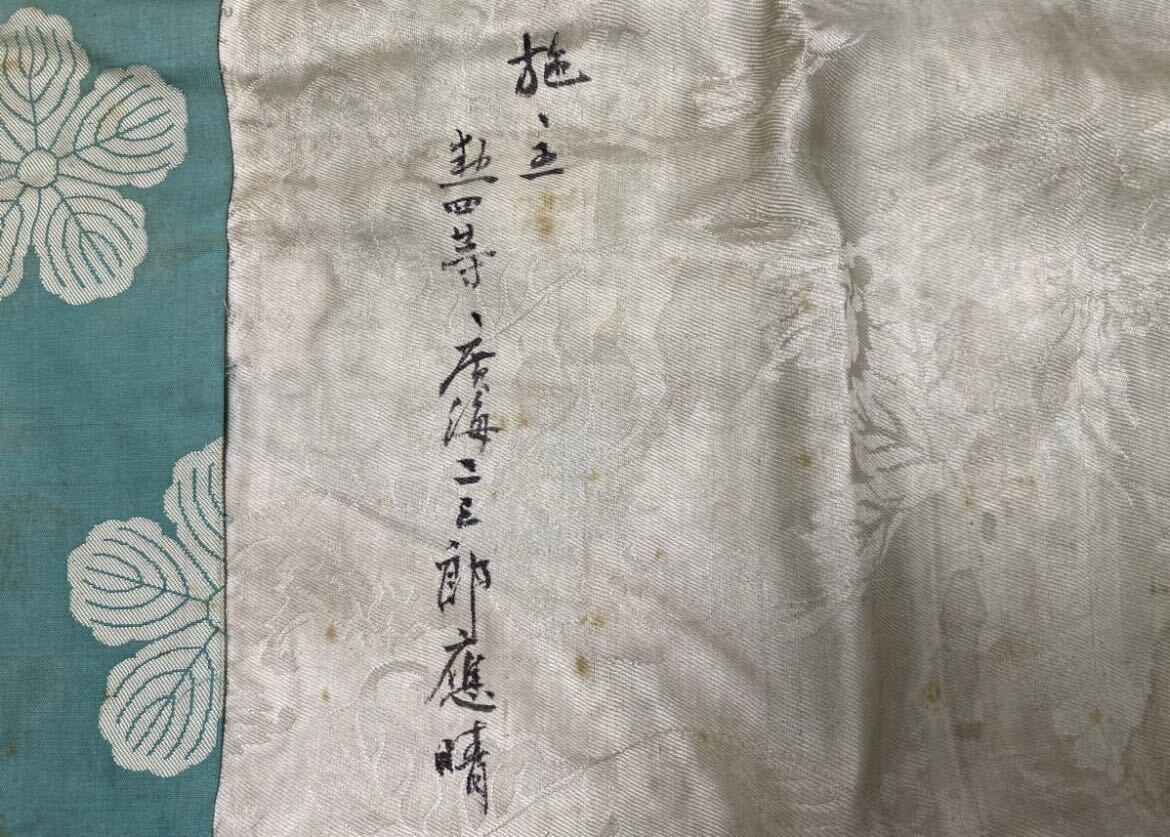 施、主
勲四等、廣海二三郎應晴